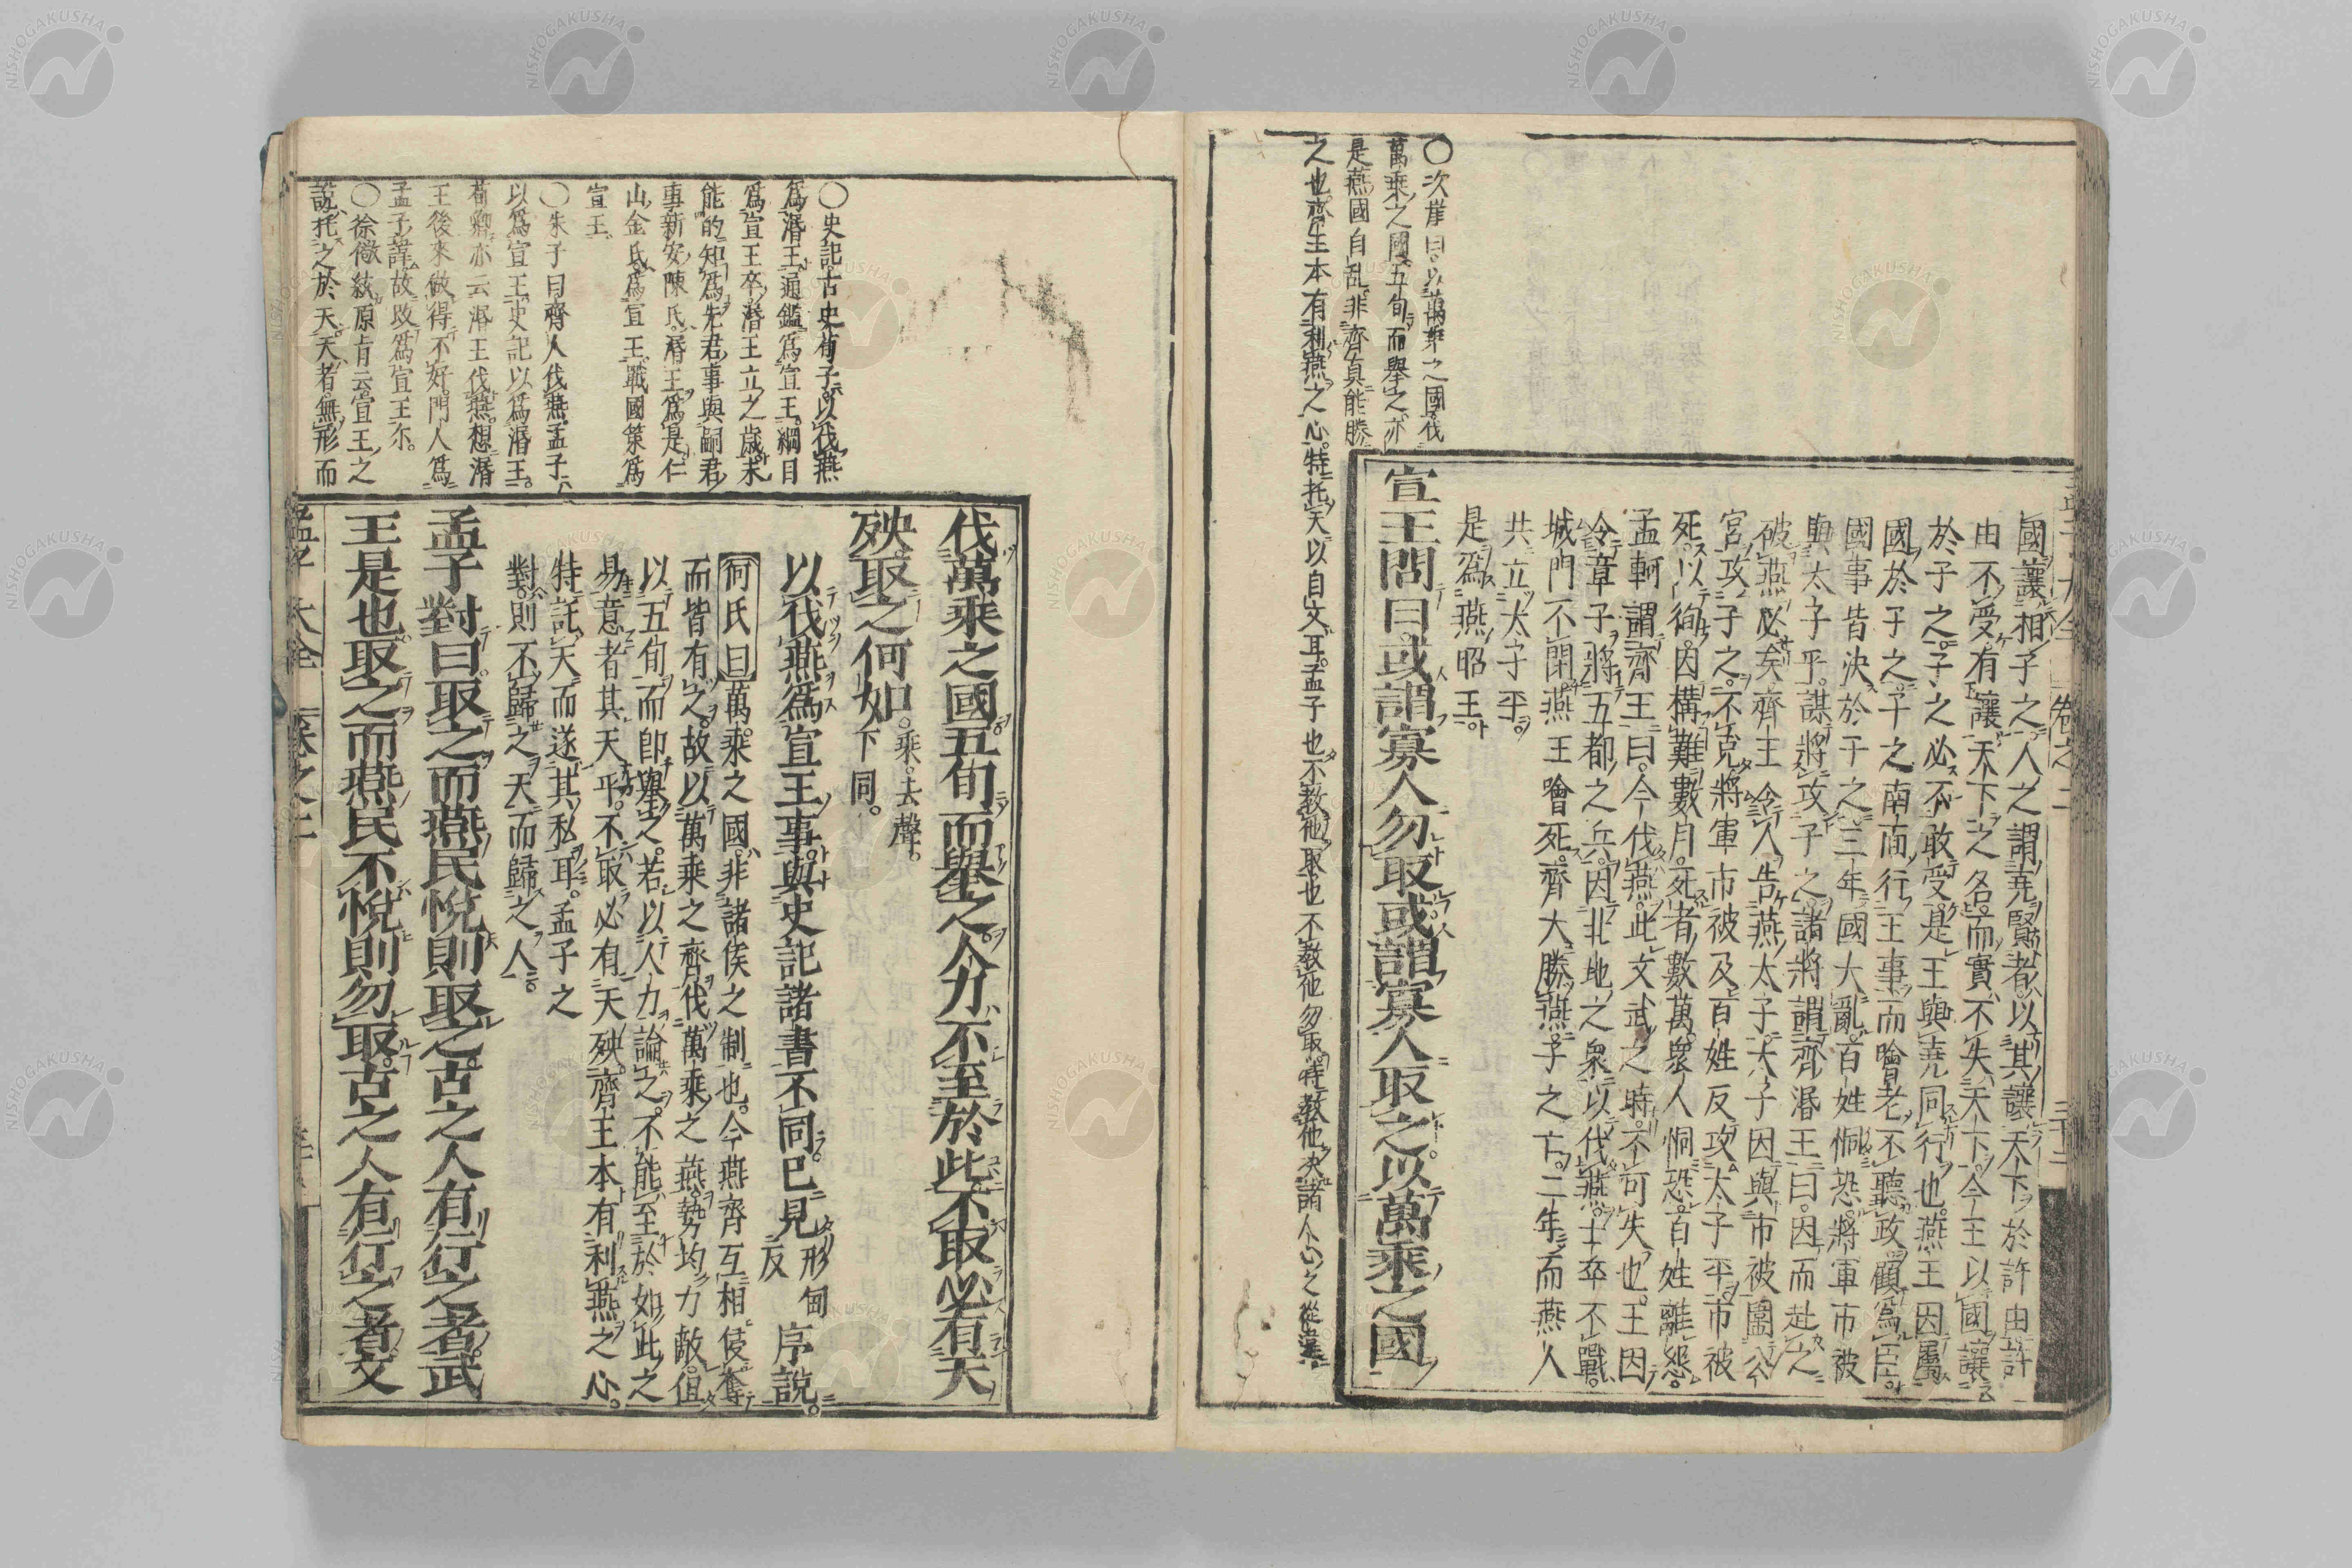 國讓相子之人之謂堯賢者以其讓天下於許由許
由不受有讓天下之名而實不失天下今王以國讓
於子之子之必不敢受是王與堯同行也燕王因屬
國於子之子之南面行王事而噲老不聽政顧爲臣
國事皆決於子之三年國大亂百姓恫恐將軍市被
與太子平謀將攻子之諸將謂齊湣王曰因而赴之
破燕必矣齊王令人告燕太子太子因與市被圍公
宮攻子之不克將軍市被及百姓反攻太子平市被
死以徇因構難數月死者數萬衆人恫恐百姓離怨
孟軻謂齊王曰今伐燕此文武之時不可失也王因
令章子將五都之兵因北地之衆以伐燕士卒不戰
城門不閉燕王噲死齊大勝燕子之亡二年而燕人
共立太子平
是爲燕昭王
宣王問曰或謂寡人勿取或謂寡人取之以萬乘之國
〇次崖曰以萬乘之國伐
萬乘之國五旬而舉之亦
是燕國自乱非齊真能勝
之也齊王本有利燕之心特托天以自文耳孟子也不教他取也不教他勿取特教他决諸人心之從違
孟子大全 卷之二
伐萬乘之國五旬而舉之人力不至於此不取必有天
殃取之何如乘去聲下同
以伐燕爲宣王事與史記諸書不同已見形甸反序說
何氏曰萬乘之國非諸侯之制也今燕齊互相侵奪
而皆有之故以萬乘之齊伐萬乘之燕勢均力敵但
以五旬而即舉之若以人力論之不能至於如此之
易意者其天乎不取必有天殃齊王本有利燕之心
特託天而遂其私耳孟子之
對則不歸之天而歸之人
孟子對曰取之而燕民悅則取之古之人有行之者武
王是也取之而燕民不悅則勿取古之人有行之者文
〇史記古史荀子以伐燕
爲湣王通鑑爲宣王綱目
爲宣王卒湣王立之歲未
能的知爲先君事與嗣君
事新安陳氏湣王爲是仁
山金氏爲宣王戰國策爲
宣王
〇朱子曰齊人伐燕孟子
以爲宣王史記以爲湣王
荀卿亦云湣王伐燕想湣
王後來做得不好門人爲
孟子諱故改爲宣王尓
〇徐儆弦原肯云宣王之
說托之於天天者無形而
孟子大全 卷之二